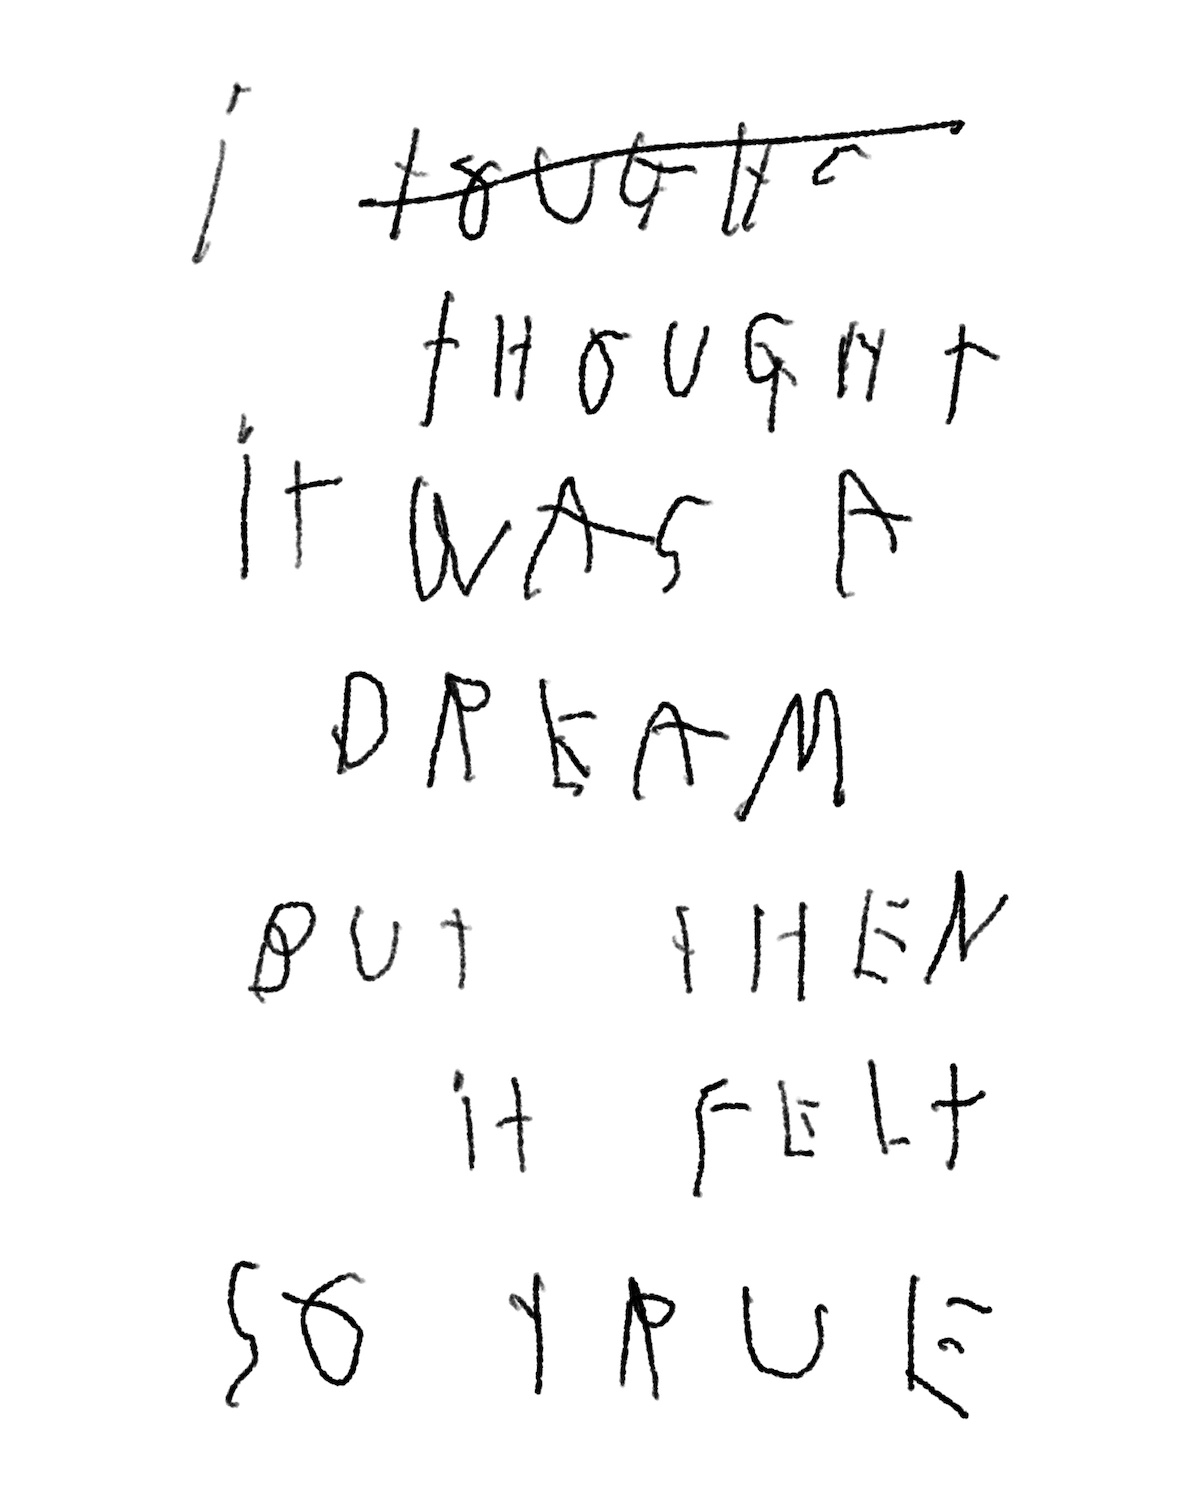 i tOUGHC
tHOUGHt
it WAS A
DREAM
BUt tHEN
it FELt
SO tRUE